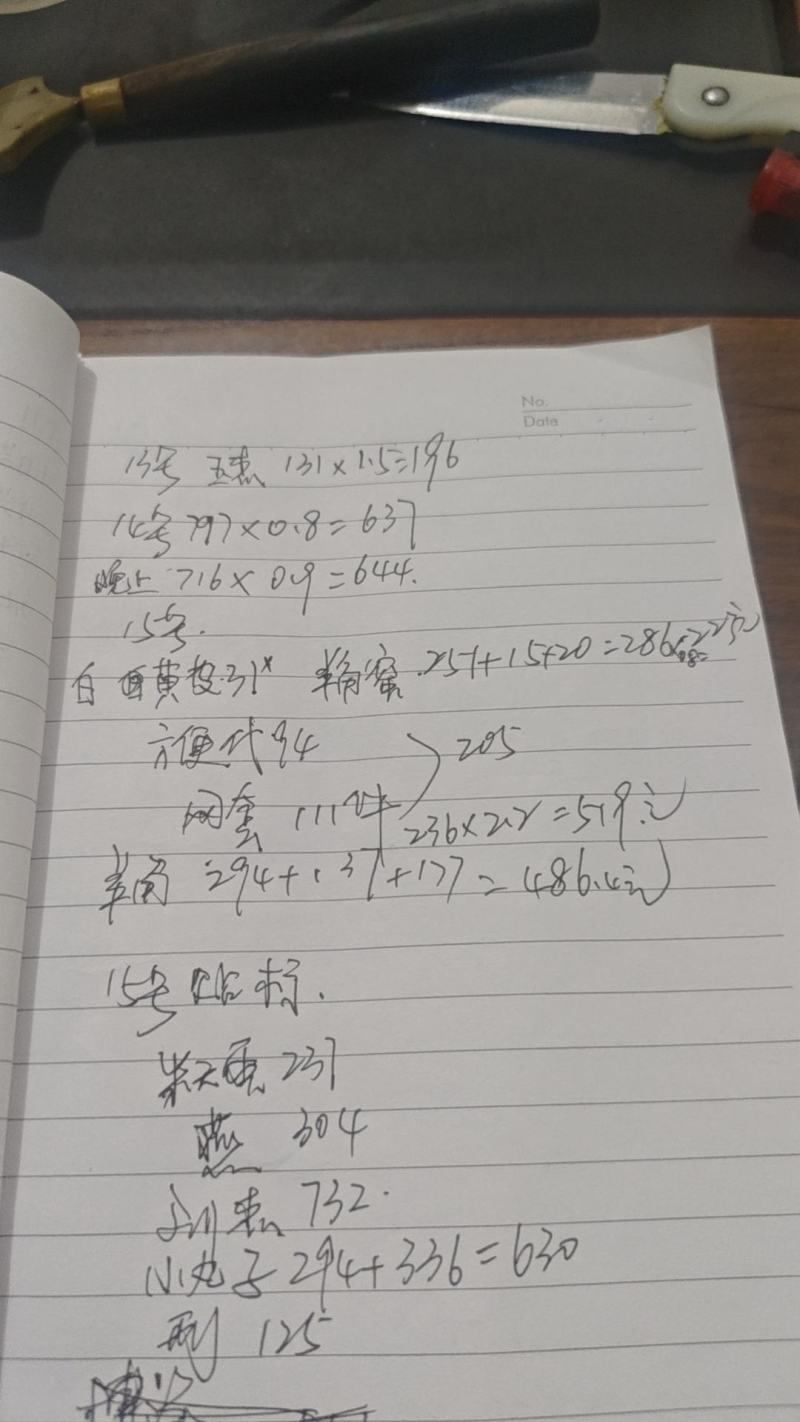 No.
Date
13号 玉惠 131×1.5=196
14号 797×0.8=637
晚上 716×0.9=644.
15号.
白 黄皮.31 羊角蜜.251+15+20=286
方便代94
网套 111件 205
236×2.2=519元
羊角 294+137+177=486.4元
15号 贴标.
237
燕 304
惠 732.
小丸子 294+336=630
125